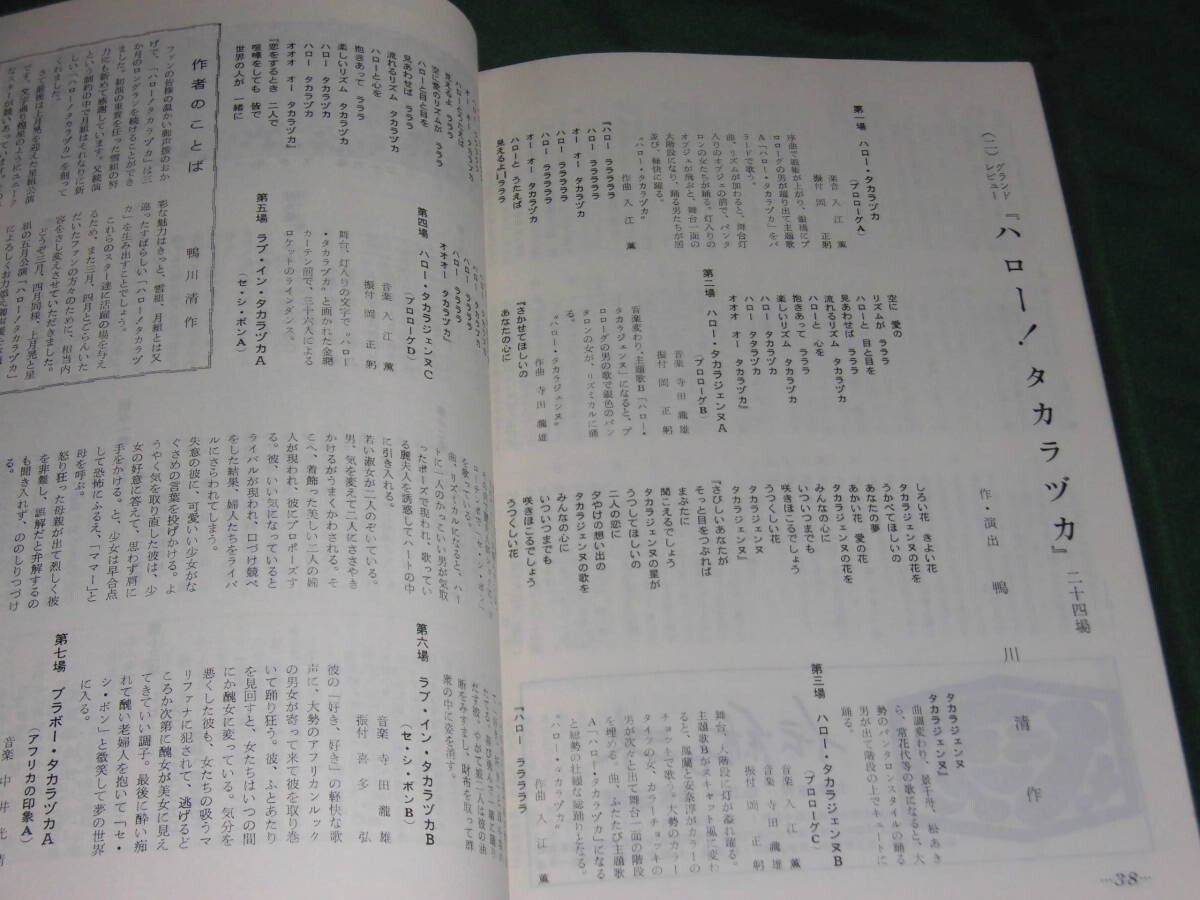 (二)グランド
レビュー
『ハロー!タカラヅカ』
二十四場
作・演出 鴨川清作
第一場 ハロー・タカラヅカ
(プロローグA)
音楽 入江 薫
振付 岡 正躬
ラードで歌う。
曲、リズムが加わると、舞台灯
入りのオブジェの前で、パンタ
ロンの女たちが踊る。灯入りの
オブジェが飛ぶと、舞台一面の
大階段になり、踊る男たちが居
並び、軽快に踊る。
作曲 入江 薫
“ハロー・タカラヅカ”
『ハロー ラララララ
ハロー ラララララ
オー オー タカラヅカ
ハロー ラララララ
ハロー ラララララ
オー オー タカラヅカ
ハローと うたえば
見えるよーラララ
空に 愛の
リズムが ラララ
ハローと 目と目を
見あわせば ラララ
流れるリズム タカラヅカ
ハローと 心を
抱きあって ラララ
楽しいリズム タカラヅカ
ハロー タカラヅカ
ハロー タカラヅカ
オオオ オー タカラヅカ』
第二場 ハロー・タカラジェンヌA
(プロローグB)
音楽 寺田瀧雄
振付 岡 正躬
音楽変わり、主題歌B「ハロー・
タカラジェンヌ」になると、プ
ロローグの男の歌で銀色のパン
タロンの女が、リズミカルに踊
る。
作曲 寺田瀧雄
“ハロー・タカラジェンヌ”
『さかせてほしいの
あなたの心に
しろい花 きよい花
タカラジェンヌの花を
うかべてほしいの
あなたの夢
あかい花 愛の花
タカラジェンヌの花を
みんなの心に
いついつまでも
咲きほこるでしょう
うつくしい花
タカラジェンヌ
タカラジェンヌ』
『さびしいあなたが
そっと目をつぶれば
まぶたに
聞こえるでしょう
タカラジェンヌの星が
うつしてほしいの
二人の恋に
夕やけの想い出の
タカラジェンヌの歌を
みんなの心に
いついつまでも
咲きほこるでしょう
うつくしい花
タカラジェンヌ
タカラジェンヌ』
勢のパンタロンスタイルの踊る
男が出て階段の上でキュートに
踊る。
第三場 ハロー・タカラジェンヌB
(プロローグC)
音楽 入江 薫
音楽 寺田瀧雄
振付 岡 正躬
舞台、大階段に灯が溢れ踊る。
主題歌Bがスキャット風に変わ
ると、鳳蘭と安奈淳がカラーの
チョッキで歌う。大勢のカラー
タイツの女、カラーチョッキの
男が次々と出て舞台一面の階段
を埋める。曲、ふたたび主題歌
A「ハロー・タカラヅカ」になる
と総勢の壮観な総踊りとなる。
作曲 入江 薫
“ハロー・タカラヅカ”
『ハロー ラララララ
…38…
見えるよ ラララ
空に愛のリズムが ラララ
ハローと目と目を
見あわせば ラララ
流れるリズム タカラヅカ
ハローと心を
抱きあって ラララ
楽しいリズム タカラヅカ
ハロー タカラヅカ
ハロー タカラヅカ
オオオ オー タカラヅカ
『恋をするとき 二人で
喧嘩をしても 皆で
世界の人が 一緒に
オオオー タカラヅカ』
第四場 ハロー・タカラジェンヌC
(プロローグD)
音楽 入江 薫
振付 岡 正躬
舞台、灯入りの文字で“ハロー
・タカラヅカ”と画かれた金網
カーテン前で、三十六人による
ロケットのラインダンス。
第五場 ラブ・イン・タカラヅカA
(セ・シ・ボンA)
曲、リズミカルになると、ハー
トに一人のかっこいい男が気取
ったポーズで現われ、歌ってい
る麗夫人を誘惑してハートの中
に引き入れる。
若い淑女が二人のぞいている。
男、気を変えて二人にささやき
かけるがうまくかわされる。そ
こへ、着飾った美しい二人の婦
人が現われ、彼にプロポーズす
る。彼、いい気になっていると
ライバルが現われ、口づけ競べ
をした結果、婦人たちをライバ
ルにさらわれてしまう。
失意の彼に、可愛いい少女がな
ぐさめの言葉を投げかける。よ
うやく気を取り直した彼は、少
女の好意に答えて、思わず肩に
手をかける。と、少女は早合点
して恐怖にふるえ、「ママー」と
母を呼ぶ。
怒り狂った母親が出て烈しく彼
を非難し、誤解だと弁解するの
も聞き入れず、ののしりつづけ
る。
断をみすまし、財布を取って群
衆の中に姿を消す。
第六場 ラブ・イン・タカラヅカB
(セ・シ・ボンB)
音楽 寺田瀧雄
振付 喜多 弘
彼の「好き、好き」の軽快な歌
声に、大勢のアフリカンルック
の男女が寄って来て彼を取り巻
いて踊り狂う。彼、ふとあたり
を見回すと、女たちはいつの間
にか醜女に変っている。気分を
悪くした彼も、女たちの吸うマ
リファナに犯されて、逃げるど
ころか次第に醜女が美女に見え
てきていい調子。最後に酔い痴
れて醜い老婦人を抱いて「セ・
シ・ボン」と微笑して夢の世界
に入る。
第七場 ブラボー・タカラヅカA
(アフリカの印象A)
音楽 中井光晴
作者のことば
鴨川清作
ファンの皆様の温かい御声援のおか
げで、「ハロー!タカラヅカ」は三
か月のロングランを続けることができ
ました。初演の重責を任った雪組の努
力にも改めて感謝しています。又続演
という制約の中で月組はそれなりに新
しい「ハロー!タカラヅカ」を創って
くれました。
さて、最後は上月晃を迎えた星組公演
です。
彩な魅力はきっと、雪組、月組とは又
違ったすばらしい「ハロー!タカラヅ
カ」を生み出すことでしょう。
これらのスター達に活躍の場を与え
るため、また三月、四月とごらんいた
だいたファンの方々のために、相当内
容をさし変えさせていただきました。
どうぞ三月、四月同様、上月晃と星
組の五月公演「ハロー!タカラヅカ」